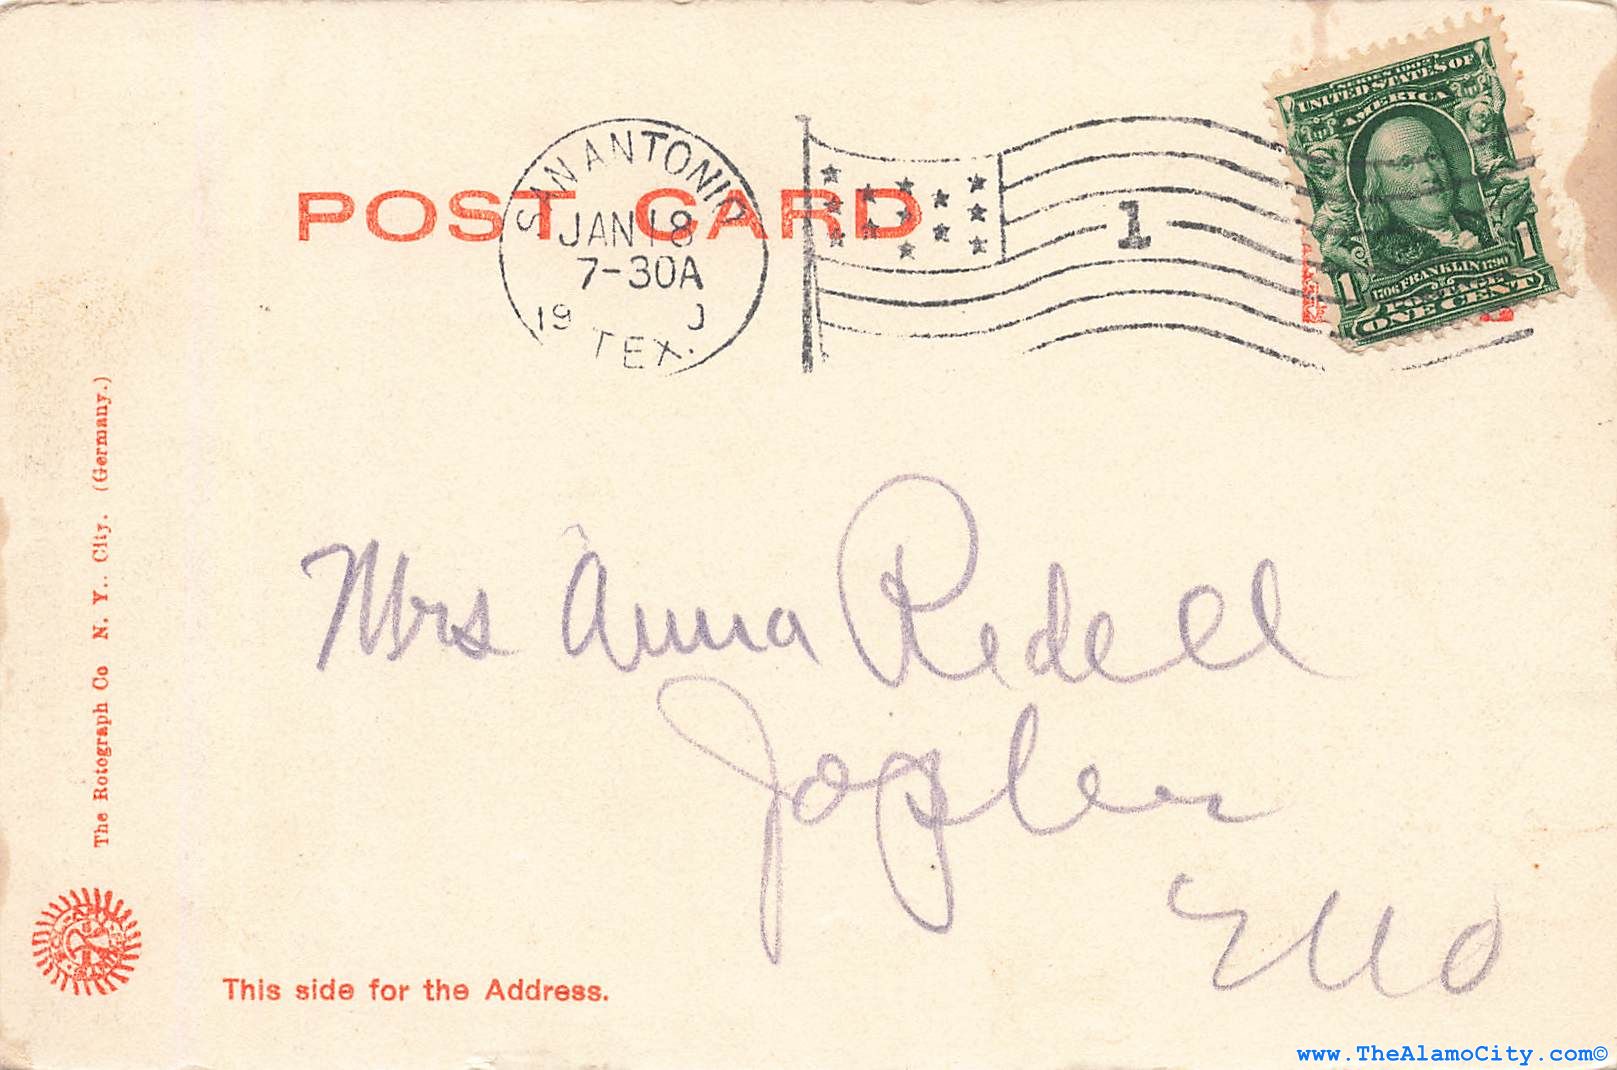 SERIES 1902
UNITED STATES OF
AMERICA
1706 FRANKLIN 1790
POSTAGE
1 1
ONE CENT
SAN ANTONIO
JAN 18
7-30A
19
TEX.
1
POST CARD
Mrs Anna Redell
Joplin
Mo
The Rotograph Co N. Y.. City. (Germany.)
This side for the Address.
www.TheAlamoCity.com©